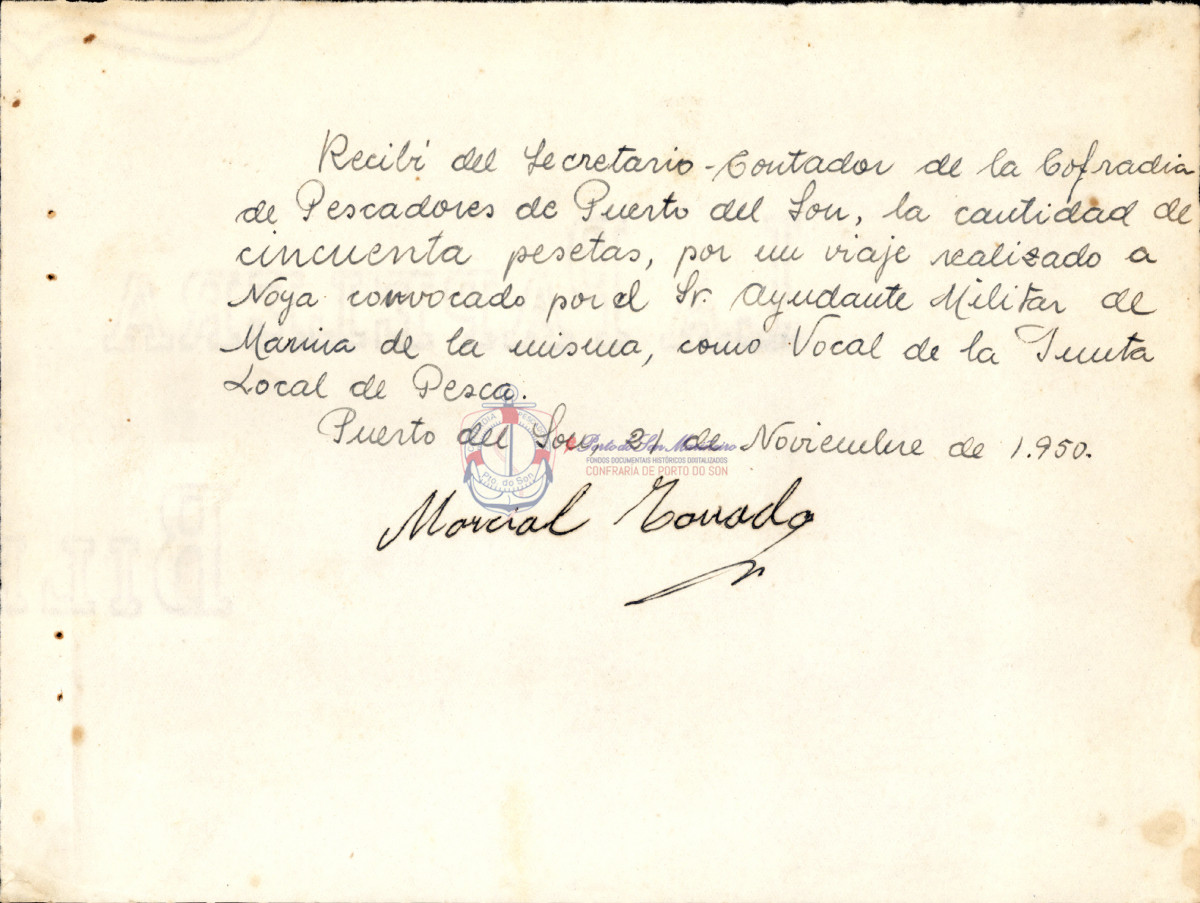 Recibí del Secretario-Contador de la Cofradia
de Pescadores de Puerto del Son, la cantidad de
cincuenta pesetas, por un viaje realizado a
Noya convocado por el Sr. Ayudante Militar de
Marina de la misma, como Vocal de la Junta
Local de Pesca.
Puerto del Son, 21 de Noviembre de 1.950.
Porto do Son Mariñeiro
FONDOS DOCUMENTAIS HISTÓRICOS DIXITALIZADOS
CONFRARÍA DE PORTO DO SON
Pto. do Son
Marcial